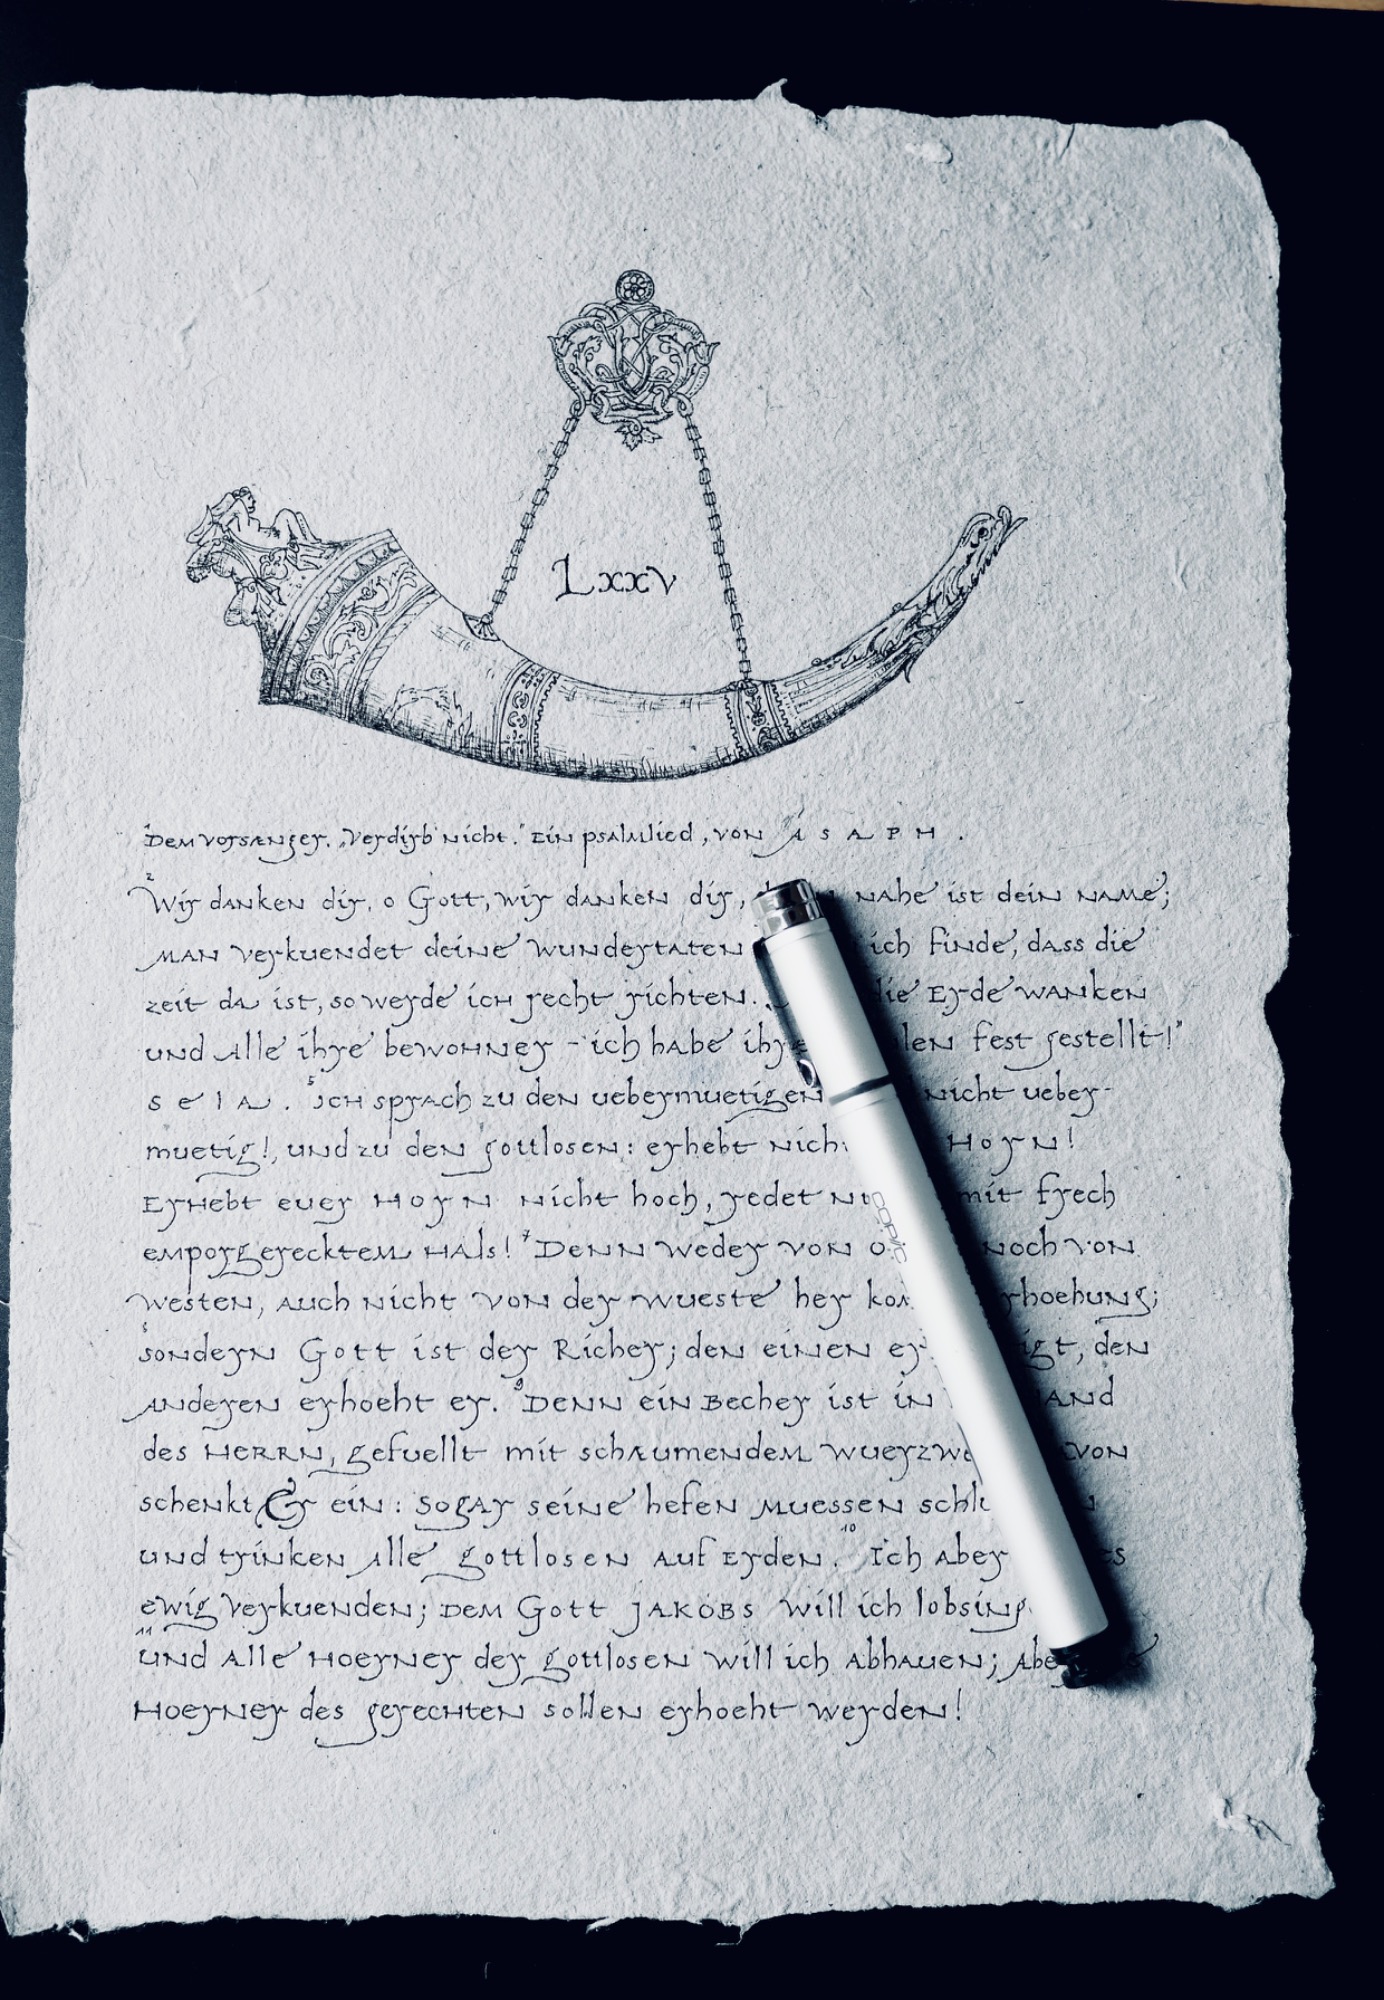 Lxxv
Dem vorsænger. „Verdirb nicht.“ Ein psalmlied, von ASAPH.
2 Wir danken dir, o Gott, wir danken dir, nahe ist dein name;
man verkuendet deine wundertaten ich finde, dass die
zeit da ist, so werde ich recht richten. die Erde wanken
und alle ihre bewohner - ich habe fest gestellt!"
sela. 5 Ich sprach zu den uebermuetigen nicht ueber-
muetig!, und zu den gottlosen: erhebt Horn!
Erhebt euer Horn nicht hoch, redet mit frech
emporgerecktem Hals! 7 Denn weder von noch von
westen, auch nicht von der wueste her
8 sondern Gott ist der Richer; den einen den
anderen erhoeht er. 9 Denn ein Becher ist in
des HERRN, gefuellt mit schæumendem von
schenkt Er ein: sogar seine hefen muessen
und trinken alle gottlosen auf Erden. 10 Ich aber
ewig verkuenden; dem Gott JAKOBS will ich
11 und alle Hoerner der gottlosen will ich abhauen;
Hoerner des gerechten sollen erhoeht werden!
COPIC